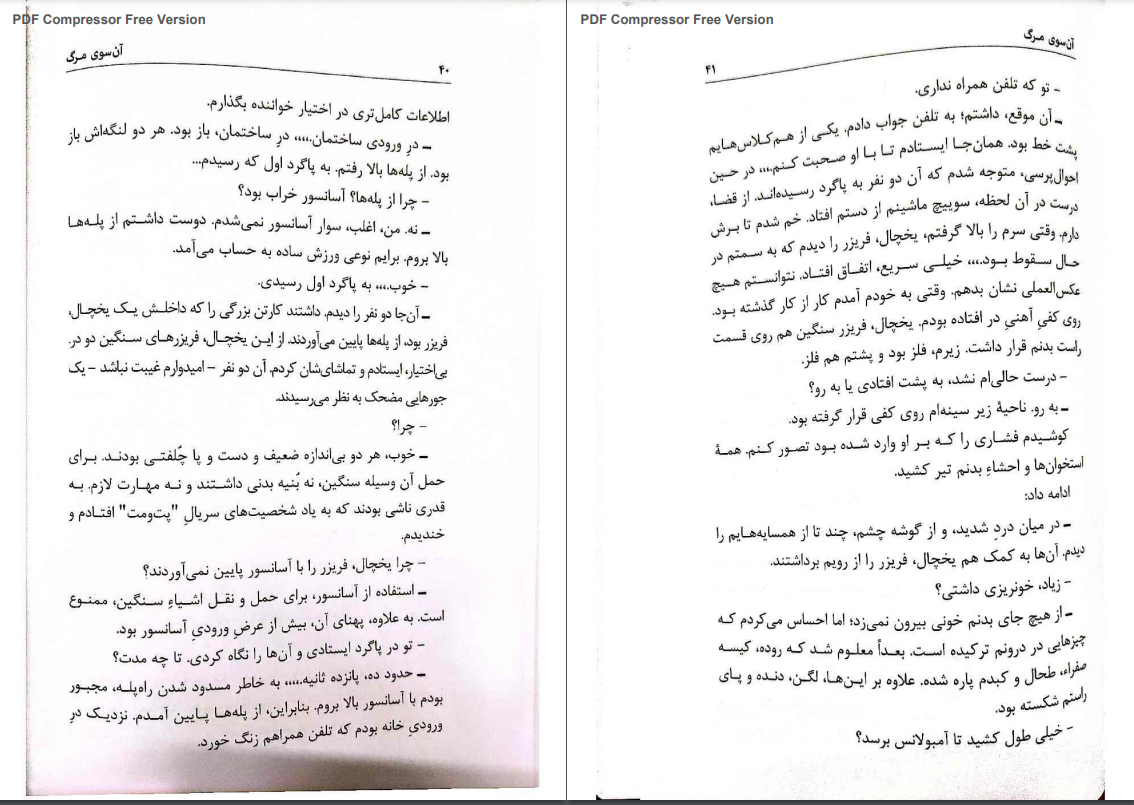 PDF Compressor Free Version
آن‌سوی مرگ
۴۰
اطلاعات کامل‌تری در اختیار خواننده بگذارم.
ـ درِ ورودی ساختمان.،،،، درِ ساختمان، باز بود. هر دو لنگه‌اش باز
بود. از پله‌ها بالا رفتم. به پاگرد اول که رسیدم...
- چرا از پله‌ها؟ آسانسور خراب بود؟
ـ نه. من، اغلب، سوار آسانسور نمی‌شدم. دوست داشتم از پله‌ها
بالا بروم. برایم نوعی ورزش ساده به حساب می‌آمد.
- خوب.،،، به پاگرد اول رسیدی.
ـ آن‌جا دو نفر را دیدم. داشتند کارتن بزرگی را که داخلش یک یخچال،
فریزر بود، از پله‌ها پایین می‌آوردند. از این یخچال، فریزرهای سنگین دو در.
بی‌اختیار، ایستادم و تماشای‌شان کردم. آن دو نفر – امیدوارم غیبت نباشد – یک
جورهایی مضحک به نظر می‌رسیدند.
- چرا؟
ـ خوب، هر دو بی‌اندازه ضعیف و دست و پا چُلفتی بودند. برای
حمل آن وسیله سنگین، نه بُنیه بدنی داشتند و نه مهارت لازم. به
قدری ناشی بودند که به یاد شخصیت‌های سریالِ "پت‌ومت" افتادم و
خندیدم.
- چرا یخچال، فریزر را با آسانسور پایین نمی‌آوردند؟
ـ استفاده از آسانسور، برای حمل و نقل اشیاءِ سنگین، ممنوع
است. به علاوه، پهنای آن، بیش از عرضِ ورودیِ آسانسور بود.
- تو در پاگرد ایستادی و آن‌ها را نگاه کردی. تا چه مدت؟
ـ حدود ده، پانزده ثانیه.،،،، به خاطر مسدود شدن راه‌پله، مجبور
بودم با آسانسور بالا بروم. بنابراین، از پله‌ها پایین آمدم. نزدیک درِ
ورودیِ خانه بودم که تلفن همراهم زنگ خورد.
PDF Compressor Free Version
آن‌سوی مرگ
۴۱
- تو که تلفن همراه نداری.
ـ آن موقع، داشتم؛ به تلفن جواب دادم. یکی از هم‌کلاس‌هایم
پشت خط بود. همان‌جا ایستادم تا با او صحبت کنم.،،، در حین
احوال‌پرسی، متوجه شدم که آن دو نفر به پاگرد رسیده‌اند. از قضا،
درست در آن لحظه، سوییچ ماشینم از دستم افتاد. خم شدم تا برش
دارم. وقتی سرم را بالا گرفتم، یخچال، فریزر را دیدم که به سمتم در
حال سقوط بود.،،، خیلی سریع، اتفاق افتاد. نتوانستم هیچ
عکس‌العملی نشان بدهم. وقتی به خودم آمدم کار از کار گذشته بود.
روی کفیِ آهنیِ در افتاده بودم. یخچال، فریزر سنگین هم روی قسمت
راست بدنم قرار داشت. زیرم، فلز بود و پشتم هم فلز.
- درست حالی‌ام نشد، به پشت افتادی یا به رو؟
ـ به رو. ناحیهٔ زیر سینه‌ام روی کفی قرار گرفته بود.
کوشیدم فشاری را که بر او وارد شده بود تصور کنم. همهٔ
استخوان‌ها و احشاءِ بدنم تیر کشید.
ادامه داد:
ـ در میان دردِ شدید، و از گوشه چشم، چند تا از همسایه‌هایم را
دیدم. آن‌ها به کمک هم یخچال، فریزر را از رویم برداشتند.
- زیاد، خونریزی داشتی؟
ـ از هیچ جای بدنم خونی بیرون نمی‌زد؛ اما احساس می‌کردم که
چیزهایی در درونم ترکیده است. بعداً معلوم شد که روده، کیسه
صفراء، طحال و کبدم پاره شده. علاوه بر این‌ها، لگن، دنده و پای
راستم شکسته بود.
- خیلی طول کشید تا آمبولانس برسد؟